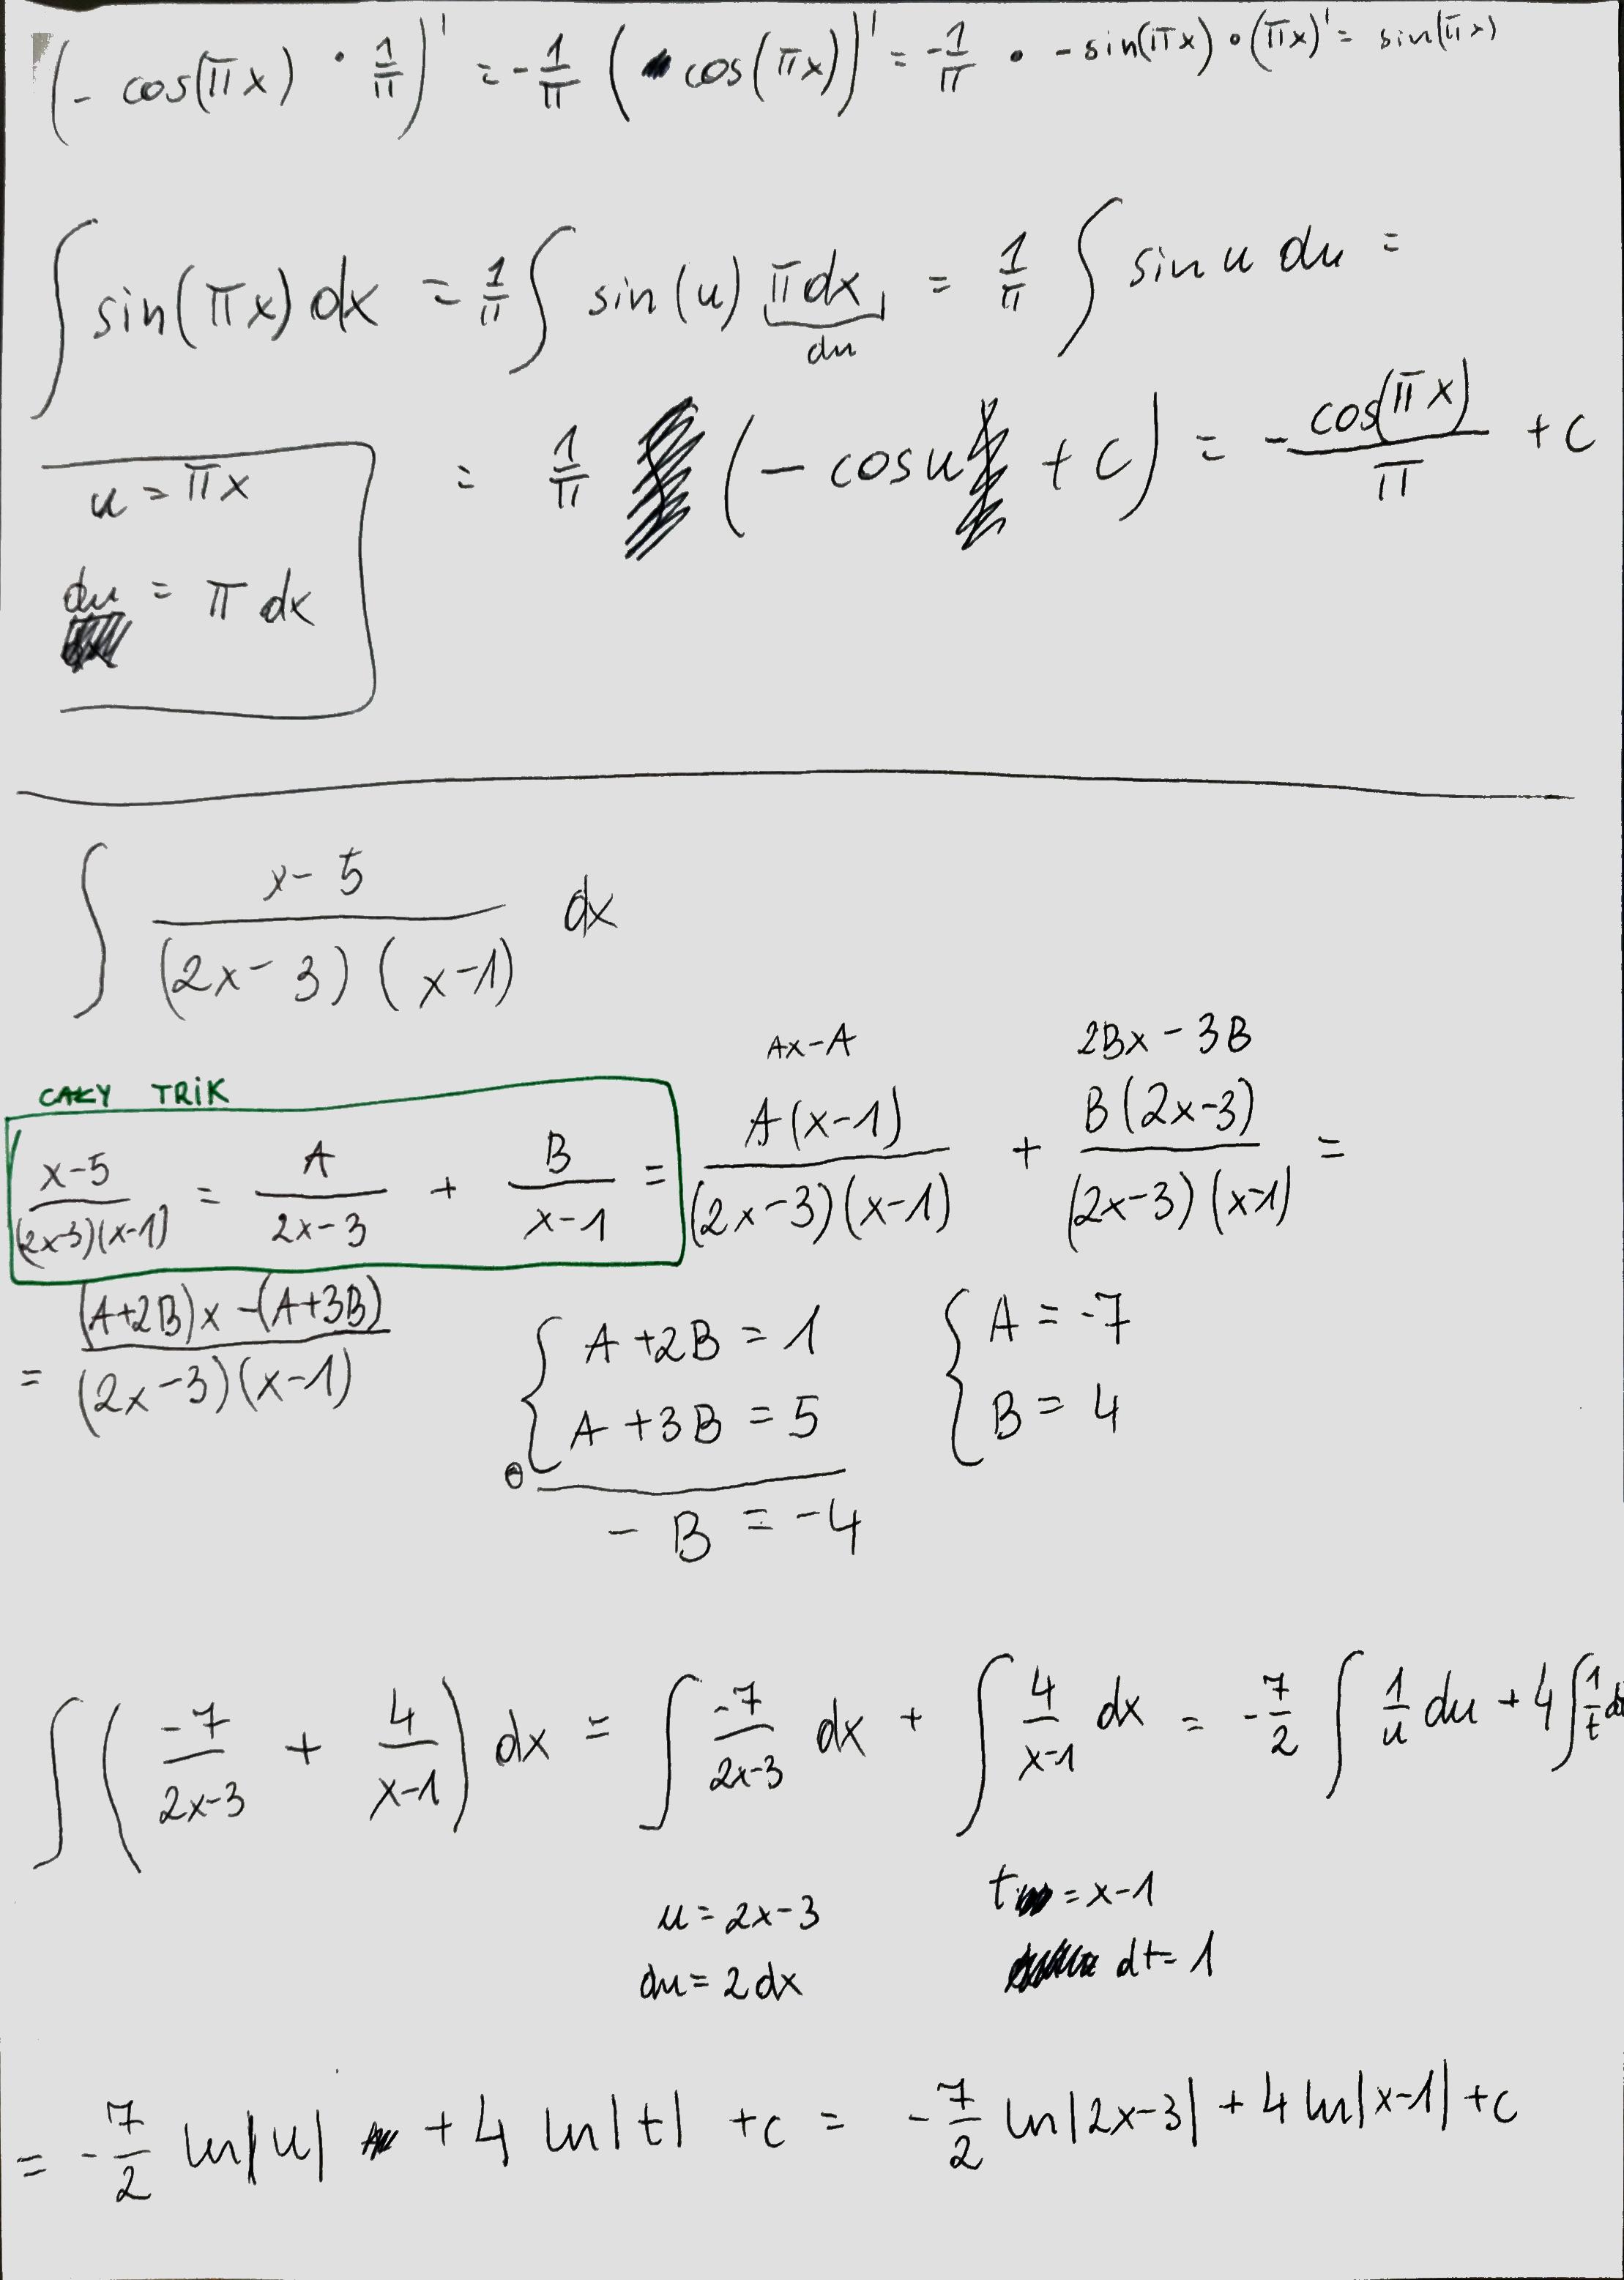 (- cos(πx) · 1/π)' = -1/π (cos(πx))' = -1/π · -sin(πx) · (πx)' = sin(πx)
∫ sin(πx) dx = 1/π ∫ sin(u) π dx = 1/π ∫ sin u du =
du
= 1/π (- cos u + c) = - cos(πx)/π + c
u = πx
du = π dx
∫ x-5/(2x-3)(x-1) dx
Ax-A 2Bx-3B
CAŁY TRIK
x-5/(2x-3)(x-1) = A/2x-3 + B/x-1 = A(x-1)/(2x-3)(x-1) + B(2x-3)/(2x-3)(x-1) =
= (A+2B)x -(A+3B)/(2x-3)(x-1)
{ A +2B = 1
A +3B = 5
- B = -4
{ A = -7
B = 4
∫ (-7/2x-3 + 4/x-1) dx = ∫ -7/2x-3 dx + ∫ 4/x-1 dx = -7/2 ∫ 1/u du + 4 ∫ 1/t dt
u = 2x-3
du = 2 dx
t = x-1
dt = 1
= -7/2 ln|u| + 4 ln|t| + c = -7/2 ln|2x-3| + 4 ln|x-1| + c